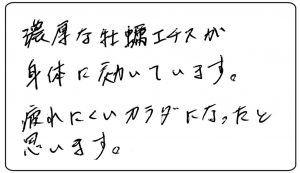 濃厚な牡蠣エキスが
身体に効いています。
疲れにくいカラダになったと
思います。